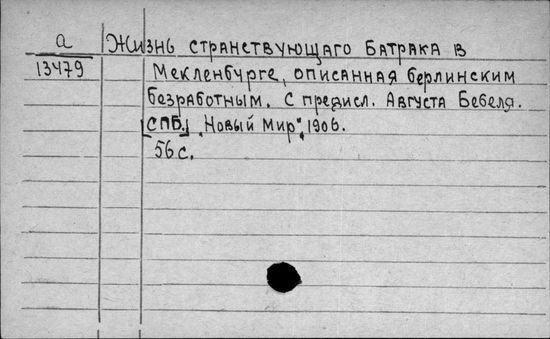 а Жизнь странствующаго батрака в
13479 Мекленбурге, описанная берлинским
безработным. С предисл. Августа Бебеля.
[СПБ.] "Новый Мир", 1906.
56 с.